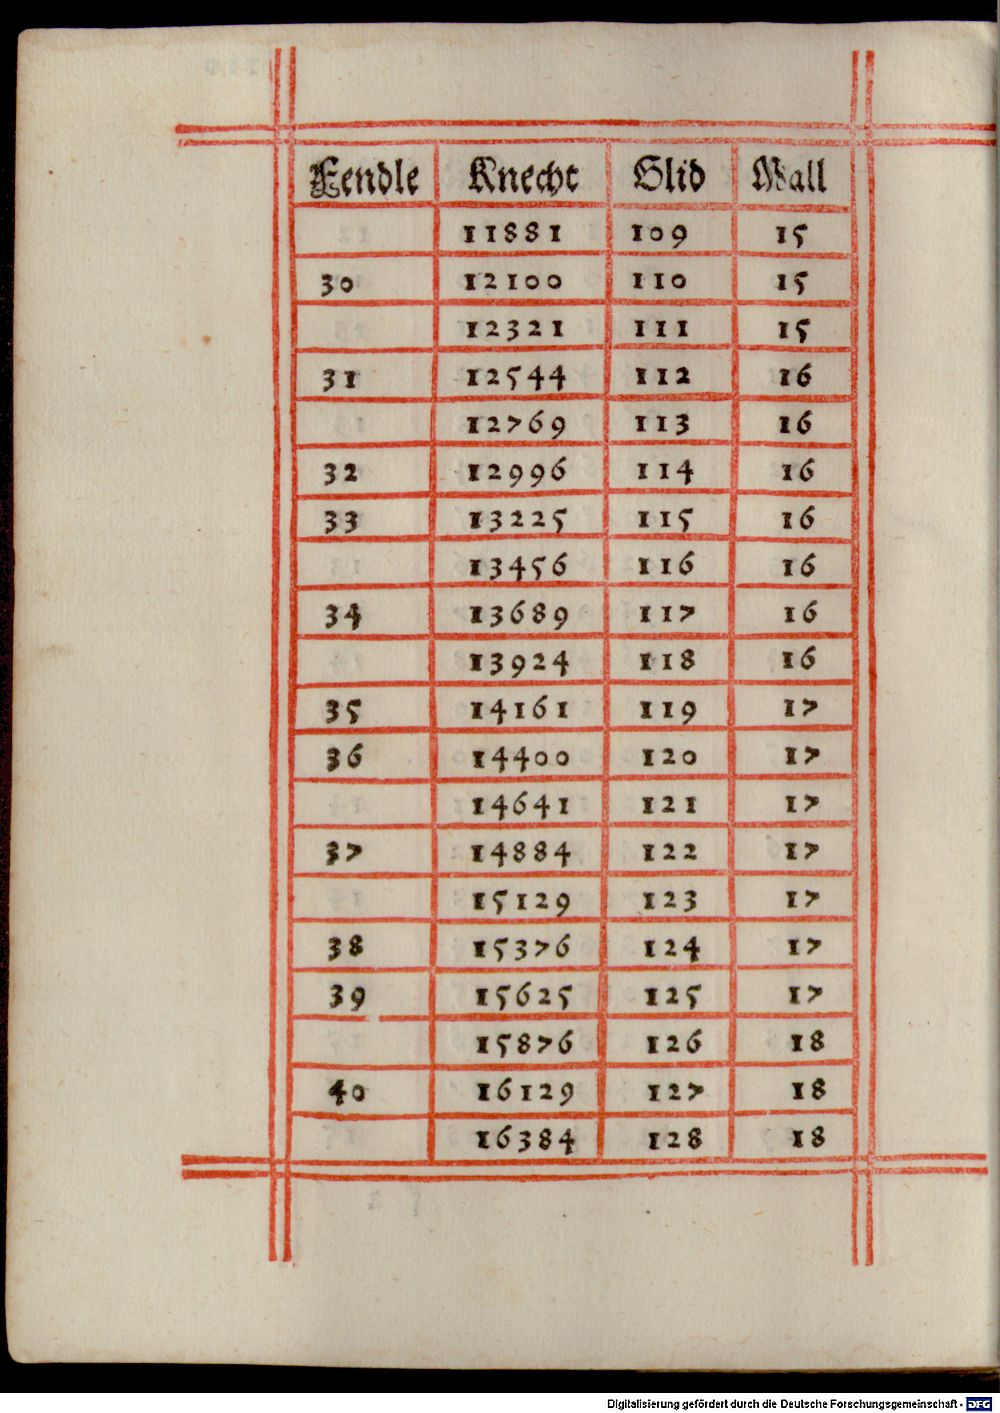 Fendle Knecht Glid Wall
11881 109 15
30 12100 110 15
12321 111 15
31 12544 112 16
12769 113 16
32 12996 114 16
33 13225 115 16
13456 116 16
34 13689 117 16
13924 118 16
35 14161 119 17
36 14400 120 17
14641 121 17
37 14884 122 17
15129 123 17
38 15376 124 17
39 15625 125 17
15876 126 18
40 16129 127 18
16384 128 18
Digitalisierung gefördert durch die Deutsche Forschungsgemeinschaft - DFG